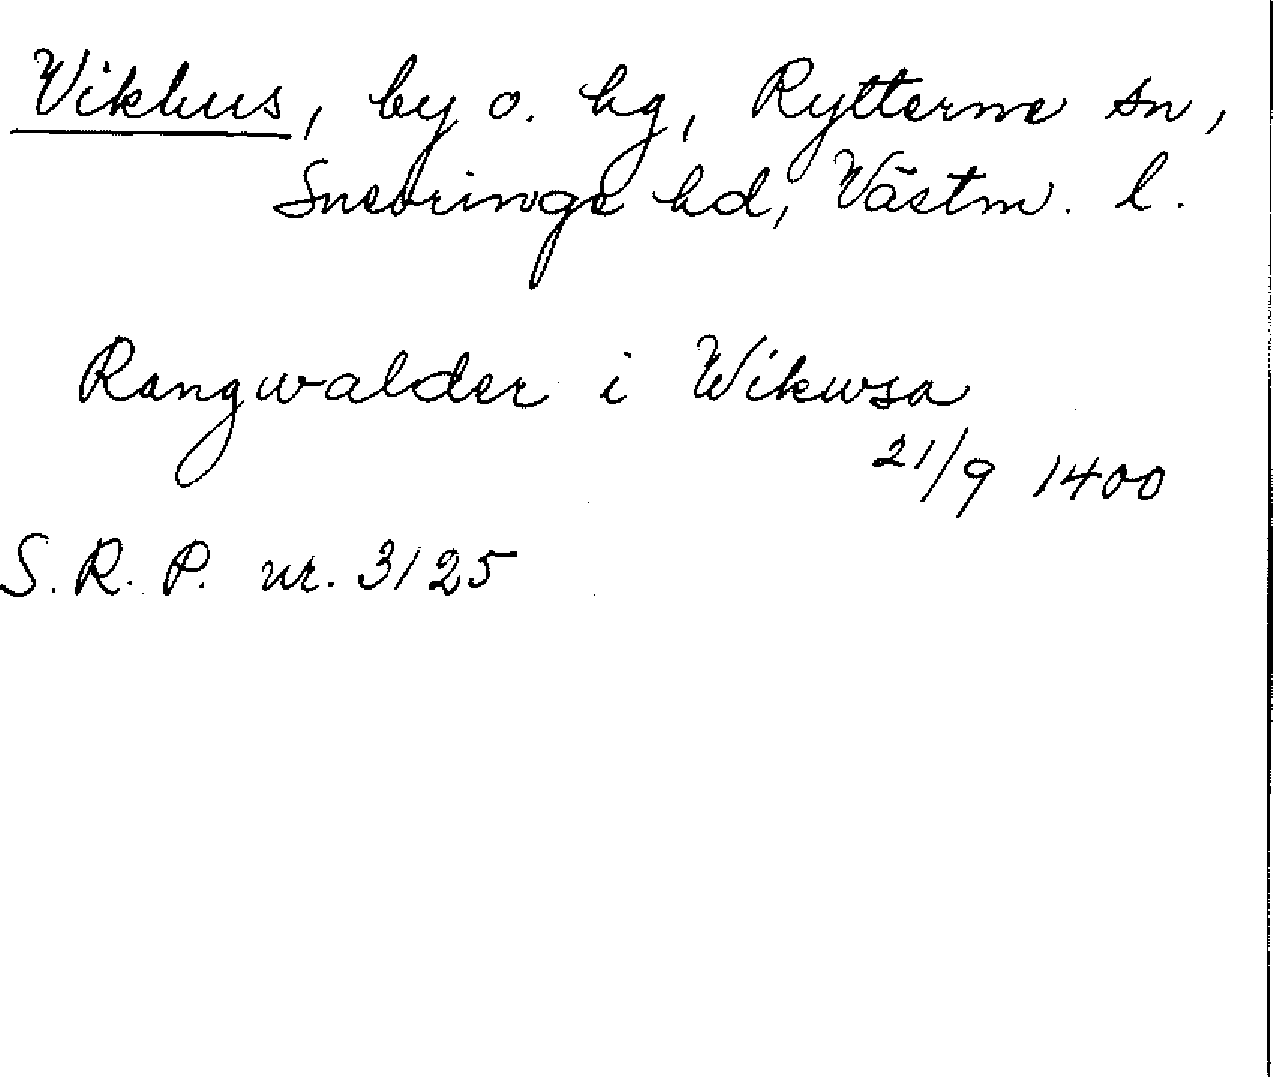 Vikhus, by o. hg, Rytterne sn,
Snevringe hd, Västm. l.
Rangwalder i Wikwsa
21/9 1400
S. R. P. nr. 3125